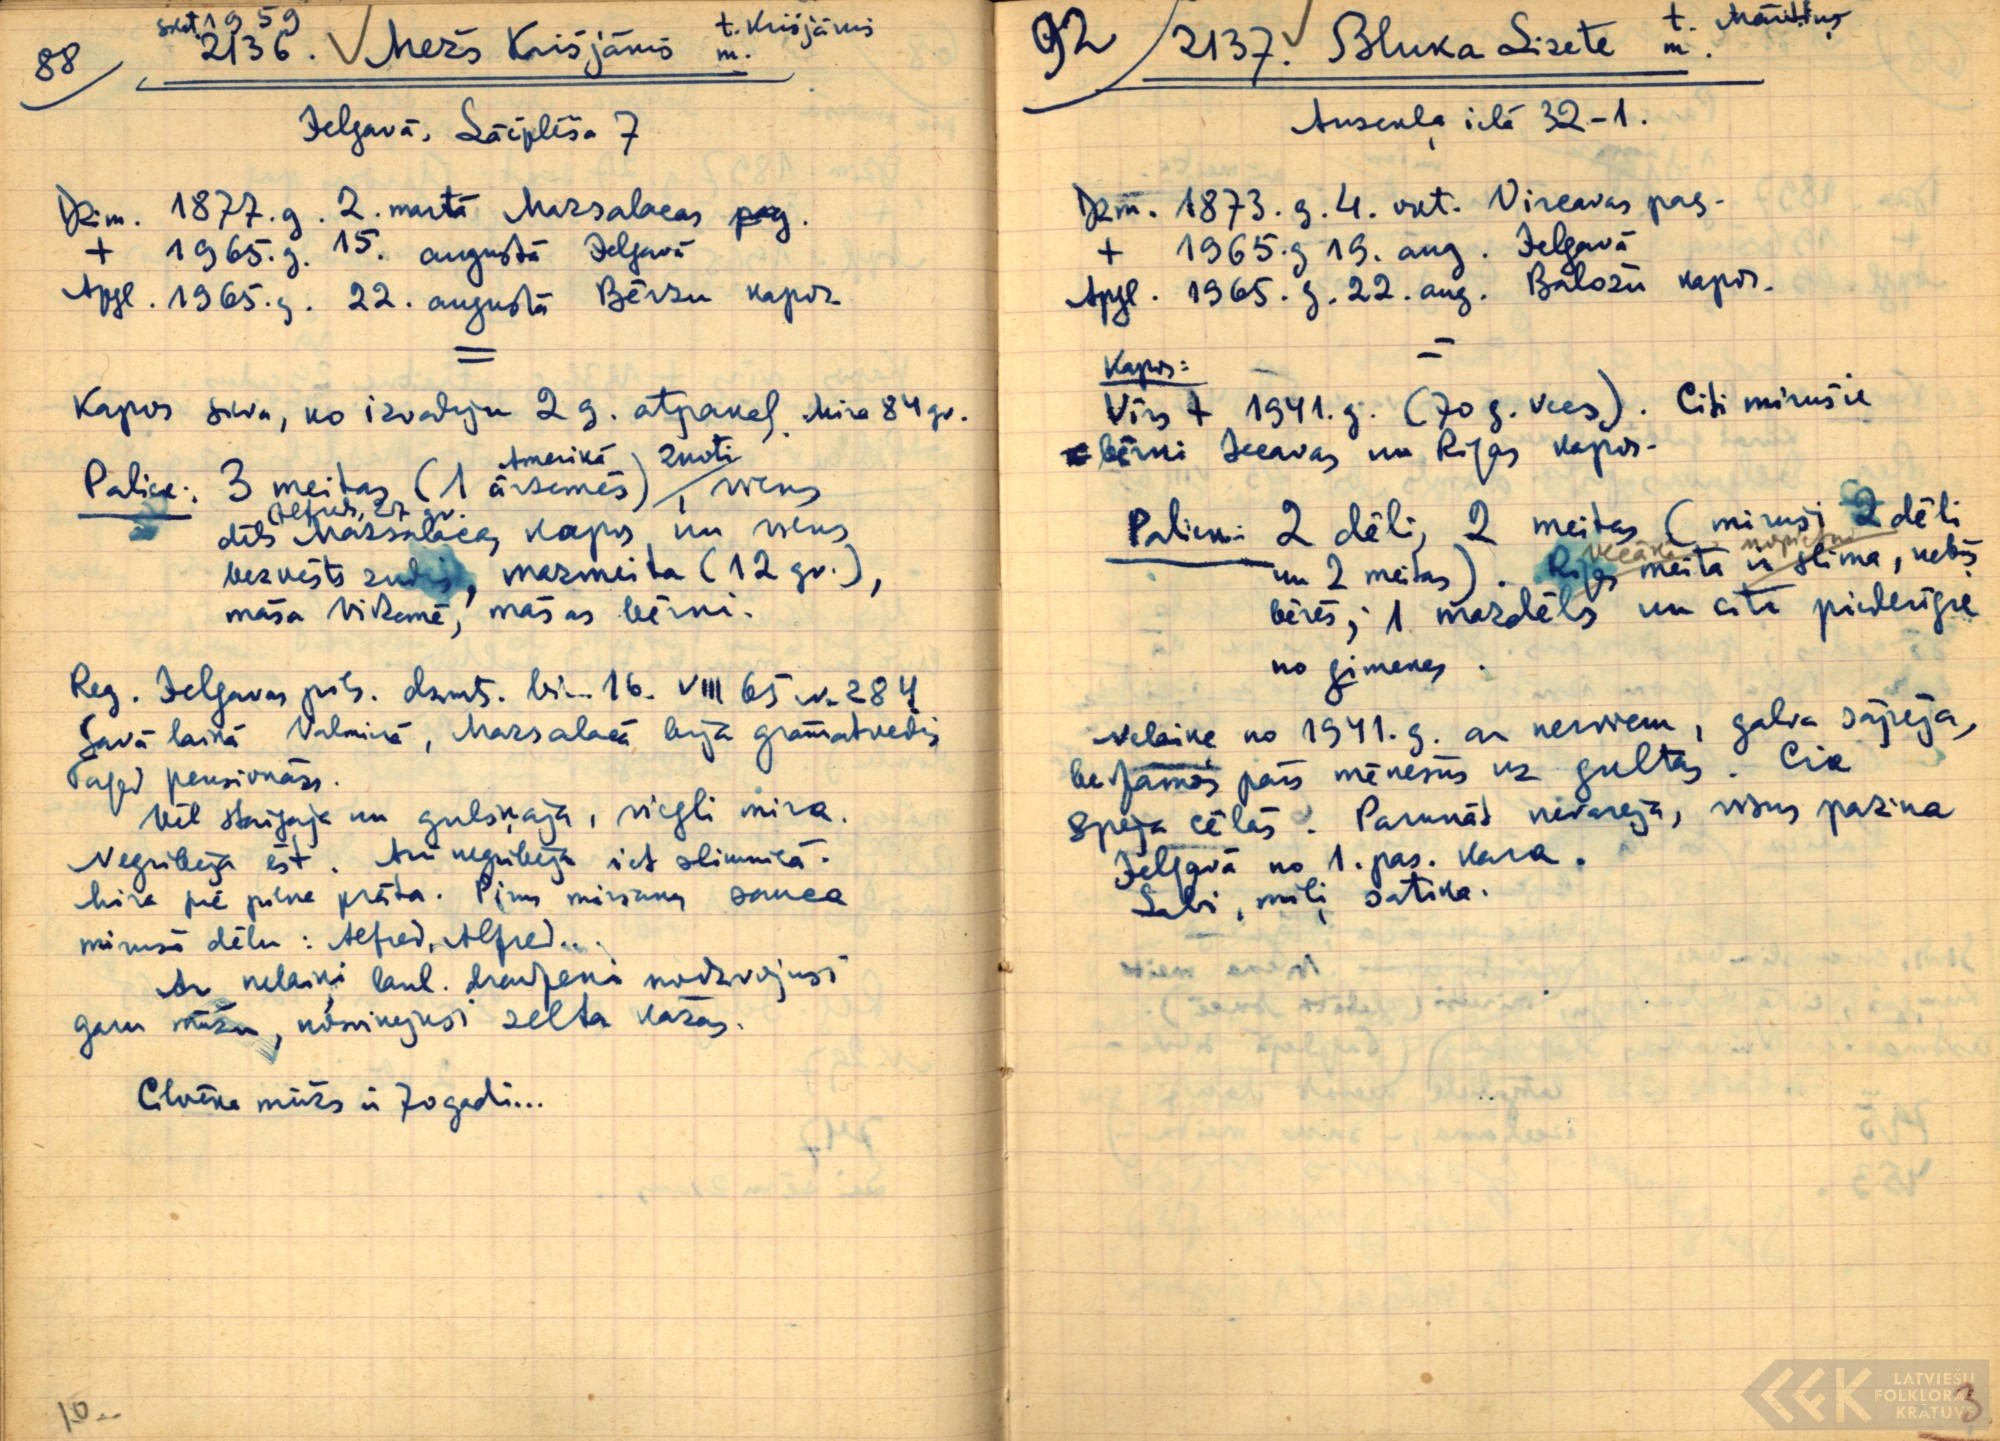 skat. 1959
88 2136. Mežs Krišjānis t. Krišjānis
m.
Jelgavā, Lāčplēša 7
Dzim. 1877. g. 2. martā Mazsalacas pag.
+ 1965. g. 15. augustā Jelgavā
Apgl. 1965. g. 22. augustā Bērzu kapos
=
Kapos sieva, ko izvadīju 2 g. atpakaļ. Mira 84 gv.
Amerikā znoti
Paliek: 3 meitas (1 ārzemēs), viens
(Alfreds, 27 gv.
dēls Mazsalacas kapos un viens
bezvēsts zudis, mazmeita (12 gv.),
māsa Vidzemē, māsas bērni.
Reg. Jelgavas pils. dzimts. bir. 16. VIII 65 N. 284
Savā laikā Valmierā, Mazsalacā bija grāmatvedis
Tagad pensionārs.
Vēl staigāja un gulšņāja, viegli mira.
Negribēja ēst. Arī negribēja iet slimnīcā.
Mira pie pilna prāta. Pirms miršanas sauca
mirušo dēlu: Alfred, Alfred...
Ar nelaiķi laul. draudzenē nodzīvojuši
garu mūžu, nosvinējuši zelta kāzas.
Cilvēka mūžs ir 70 gadi...
10.-
92 2137. Bluka Lizete t. Mārtiņš
m.
Ausekļa ielā 32-1.
Dzim. 1873. g. 4. okt. Vircavas pag.
+ 1965. g 19. aug. Jelgavā
Apgl. 1965. g. 22. aug. Baložu kapos.
=
Kapos:
Vīrs + 1941. g. (70 g. vecs). Citi mirušie
bērni Iecavas un Rīgas kapos.
Paliek: 2 dēli, 2 meitas (miruši 2 dēli
vecākā nopietni
un 2 meitas). Rīgas meita ir slima, nebūs
bērēs; 1 mazdēls un citi piederīgie
no ģimenes.
Nelaiķe no 1941. g. ar nerviem, galva sāpēja,
beidzamos pāris mēnešus uz gultas. Cik
spēja cēlās. Parunāt nevarēja, visus pazina
Jelgavā no 1. pas. kara.
Labi, mīļi satika.
3
LATVIEŠU
FOLKLORAS
KRĀTUVE